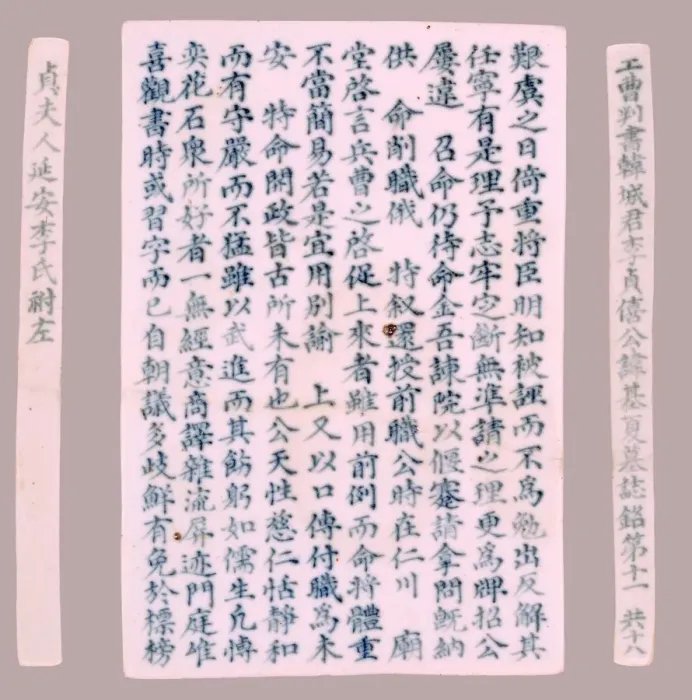 工曹判書韓城君李貞僖公諱基夏墓誌銘第十一 共十八
艱虞之日倚重將臣明知被誣而不爲勉出反解其
任寧有是理予志牢定斷無準請之理更爲牌招公
屢違 召命仍待命金吾諫院以偃蹇請拿問旣納
供 命削職俄 特敍還授前職公時在仁川 廟
堂啓言兵曹之啓從上來者雖用前例而命將體重
不當簡易若是宜用別諭 上又以口傳付職爲未
安 特命開政皆古所未有也公天性慈仁恬靜和
而有守嚴而不猛雖以武進而其飭躬如儒生凡博
奕花石衆所好者一無經意商譯雜流屏迹門庭唯
喜觀書時或習字而已自朝議多歧鮮有免於標榜
貞夫人延安李氏祔左